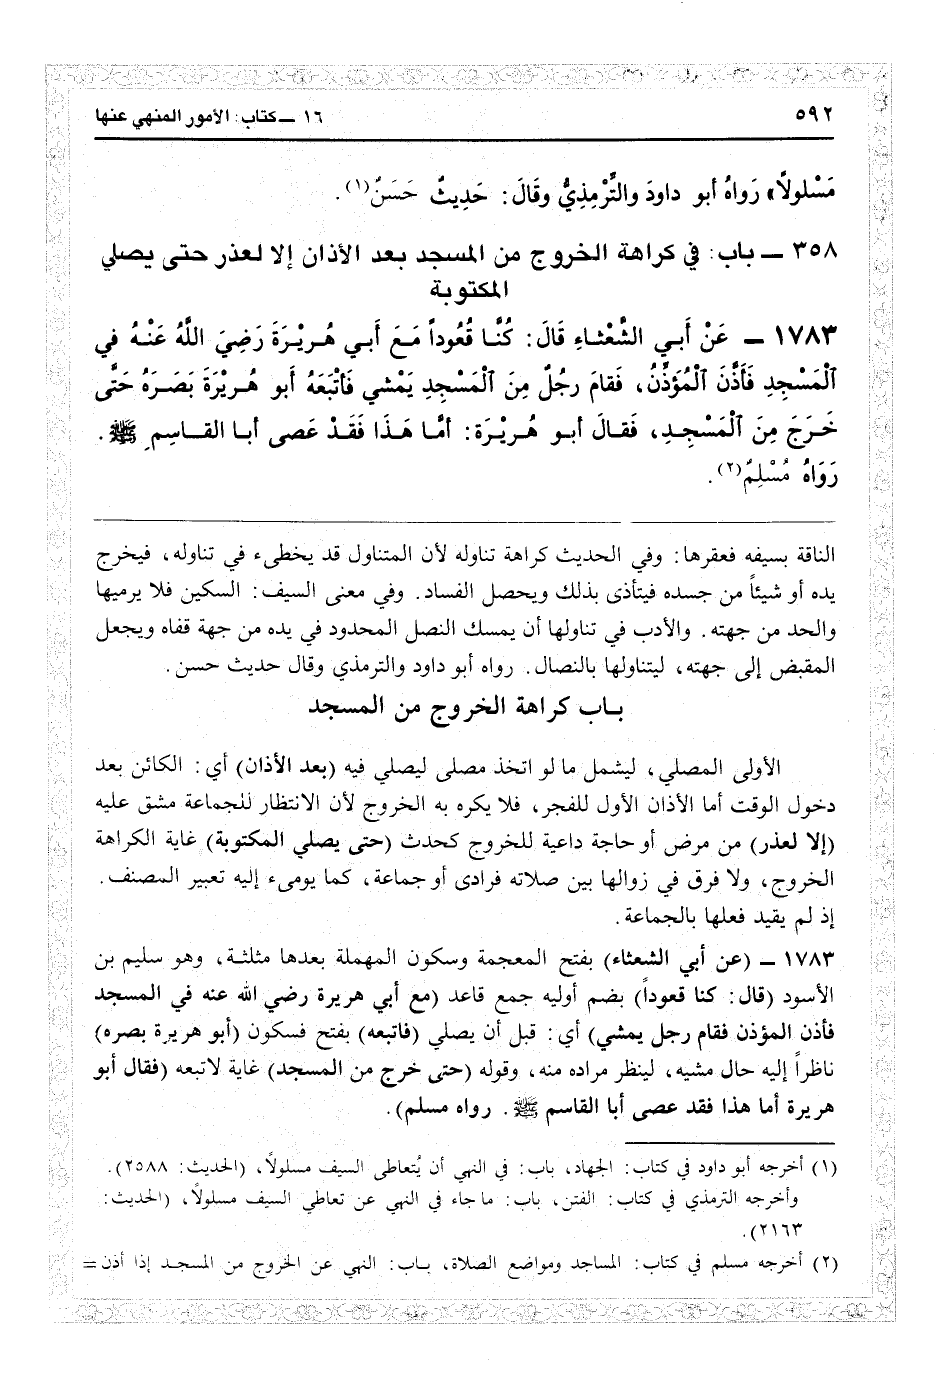 ٥٩٢
١٦ ــ كتاب: الأمور المنهي عنها
مَسْلولًا» رَواهُ أبو داودَ والتِّرْمِذِيُّ وقَالَ: حَدِيثٌ حَسَنٌ(١).
٣٥٨ ــ باب: في كراهة الخروج من المسجد بعد الأذان إلا لعذر حتى يصلي
المكتوبة
١٧٨٣ ــ عَنْ أَبي الشَّعْثاءِ قَالَ: كُنَّا قُعُوداً مَعَ أَبي هُرِيْرَةَ رَضِيَ اللَّهُ عَنْهُ في
الْمَسْجِدِ فَأَذَّنَ الْمُؤَذِّنُ، فَقامَ رجُلٌ مِنَ الْمَسْجِدِ يَمْشي فَأَتْبَعَهُ أبو هُرِيْرَةَ بَصَرَهُ حَتَّى
خَرَجَ مِنَ الْمَسْجِدِ، فَقَالَ أبو هُرِيْرَة: أمَّا هَذَا فَقَدْ عَصى أبا القَاسِمِ ﷺ.
رَوَاهُ مُسْلِمٌ(٢).
الناقة بسيفه فعقرها: وفي الحديث كراهة تناوله لأن المتناول قد يخطىء في تناوله، فيخرج
يده أو شيئاً من جسده فيتأذى بذلك ويحصل الفساد. وفي معنى السيف: السكين فلا يرميها
والحد من جهته. والأدب في تناولها أن يمسك النصل المحدود في يده من جهة قفاه ويجعل
المقبض إلى جهته، ليتناولها بالنصال. رواه أبو داود والترمذي وقال حديث حسن.
باب كراهة الخروج من المسجد
الأولى المصلي، ليشمل ما لو اتخذ مصلى ليصلي فيه (بعد الأذان) أي: الكائن بعد
دخول الوقت أما الأذان الأول للفجر، فلا يكره به الخروج لأن الانتظار للجماعة مشق عليه
(إلا لعذر) من مرض أو حاجة داعية للخروج كحدث (حتى يصلي المكتوبة) غاية الكراهة
الخروج، ولا فرق في زوالها بين صلاته فرادى أو جماعة، كما يومىء إليه تعبير المصنف.
إذ لم يقيد فعلها بالجماعة.
١٧٨٣ ــ (عن أبي الشعثاء) بفتح المعجمة وسكون المهملة بعدها مثلثة، وهو سليم بن
الأسود (قال: كنا قعوداً) بضم أوليه جمع قاعد (مع أبي هريرة رضي الله عنه في المسجد
فأذن المؤذن فقام رجل يمشي) أي: قبل أن يصلي (فاتبعه) بفتح فسكون (أبو هريرة بصره)
ناظراً إليه حال مشيه، لينظر مراده منه، وقوله (حتى خرج من المسجد) غاية لاتبعه (فقال أبو
هريرة أما هذا فقد عصى أبا القاسم ﷺ. رواه مسلم).
(١) أخرجه أبو داود في كتاب: الجهاد، باب: في النهي أن يُتعاطى السيف مسلولًا، (الحديث: ٢٥٨٨).
وأخرجه الترمذي في كتاب: الفتن، باب: ما جاء في النهي عن تعاطي السيف مسلولًا، (الحديث:
٢١٦٣).
(٢) أخرجه مسلم في كتاب: المساجد ومواضع الصلاة، باب: النهي عن الخروج من المسجد إذا أذن=